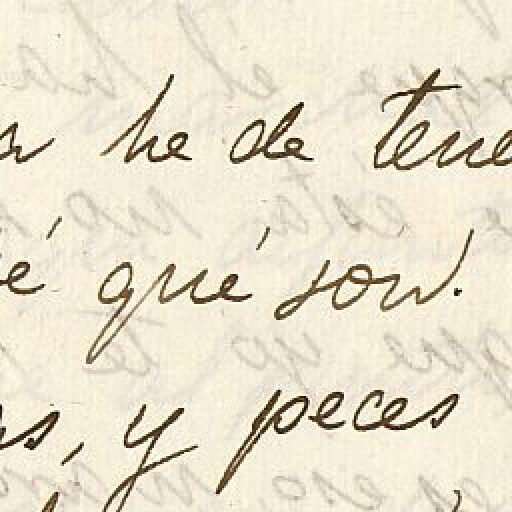 he de tene
é qué son.
s, y peces